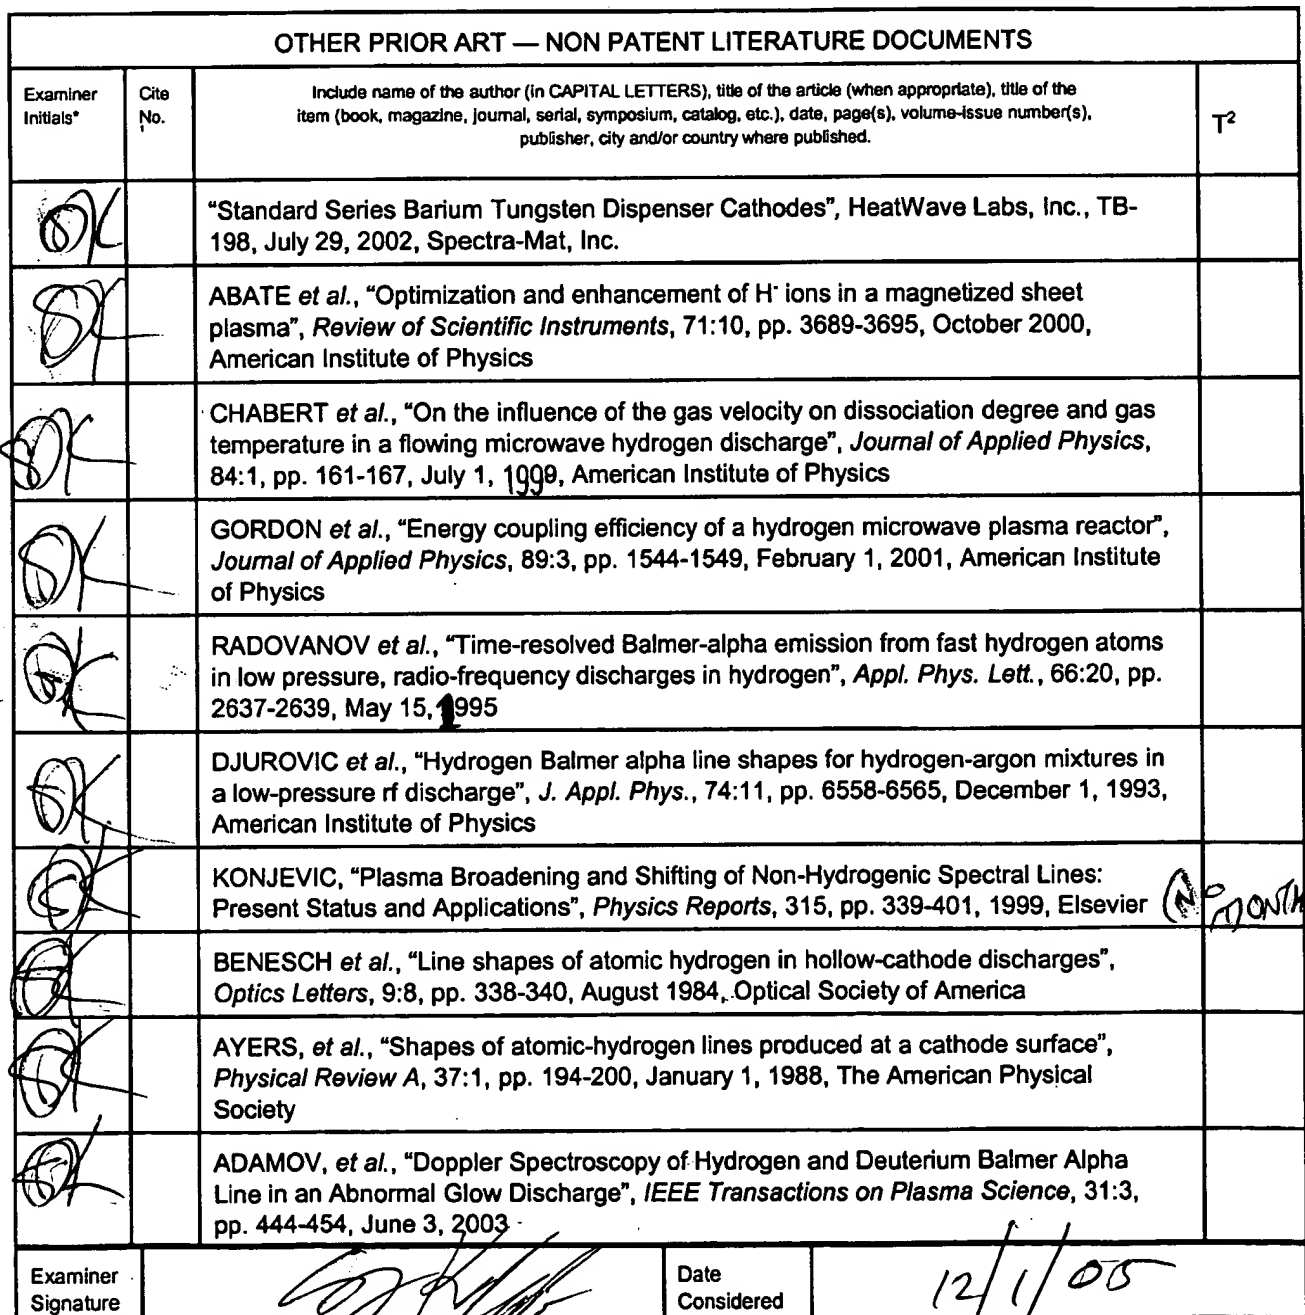 OTHER PRIOR ART — NON PATENT LITERATURE DOCUMENTS
Examiner
Initials*
Cite
No.
1
Include name of the author (in CAPITAL LETTERS), title of the article (when appropriate), title of the
item (book, magazine, journal, serial, symposium, catalog, etc.), date, page(s), volume-issue number(s),
publisher, city and/or country where published.
T²
"Standard Series Barium Tungsten Dispenser Cathodes", HeatWave Labs, Inc., TB-
198, July 29, 2002, Spectra-Mat, Inc.
ABATE et al., "Optimization and enhancement of H⁻ ions in a magnetized sheet
plasma", Review of Scientific Instruments, 71:10, pp. 3689-3695, October 2000,
American Institute of Physics
CHABERT et al., "On the influence of the gas velocity on dissociation degree and gas
temperature in a flowing microwave hydrogen discharge", Journal of Applied Physics,
84:1, pp. 161-167, July 1, , American Institute of Physics
GORDON et al., "Energy coupling efficiency of a hydrogen microwave plasma reactor",
Journal of Applied Physics, 89:3, pp. 1544-1549, February 1, 2001, American Institute
of Physics
RADOVANOV et al., "Time-resolved Balmer-alpha emission from fast hydrogen atoms
in low pressure, radio-frequency discharges in hydrogen", Appl. Phys. Lett., 66:20, pp.
2637-2639, May 15, 1995
DJUROVIC et al., "Hydrogen Balmer alpha line shapes for hydrogen-argon mixtures in
a low-pressure rf discharge", J. Appl. Phys., 74:11, pp. 6558-6565, December 1, 1993,
American Institute of Physics
KONJEVIC, "Plasma Broadening and Shifting of Non-Hydrogenic Spectral Lines:
Present Status and Applications", Physics Reports, 315, pp. 339-401, 1999, Elsevier (NO MONTH
BENESCH et al., "Line shapes of atomic hydrogen in hollow-cathode discharges",
Optics Letters, 9:8, pp. 338-340, August 1984, Optical Society of America
AYERS, et al., "Shapes of atomic-hydrogen lines produced at a cathode surface",
Physical Review A, 37:1, pp. 194-200, January 1, 1988, The American Physical
Society
ADAMOV, et al., "Doppler Spectroscopy of Hydrogen and Deuterium Balmer Alpha
Line in an Abnormal Glow Discharge", IEEE Transactions on Plasma Science, 31:3,
pp. 444-454, June 3, 2003
Examiner
Signature
Date
Considered
12/1/05